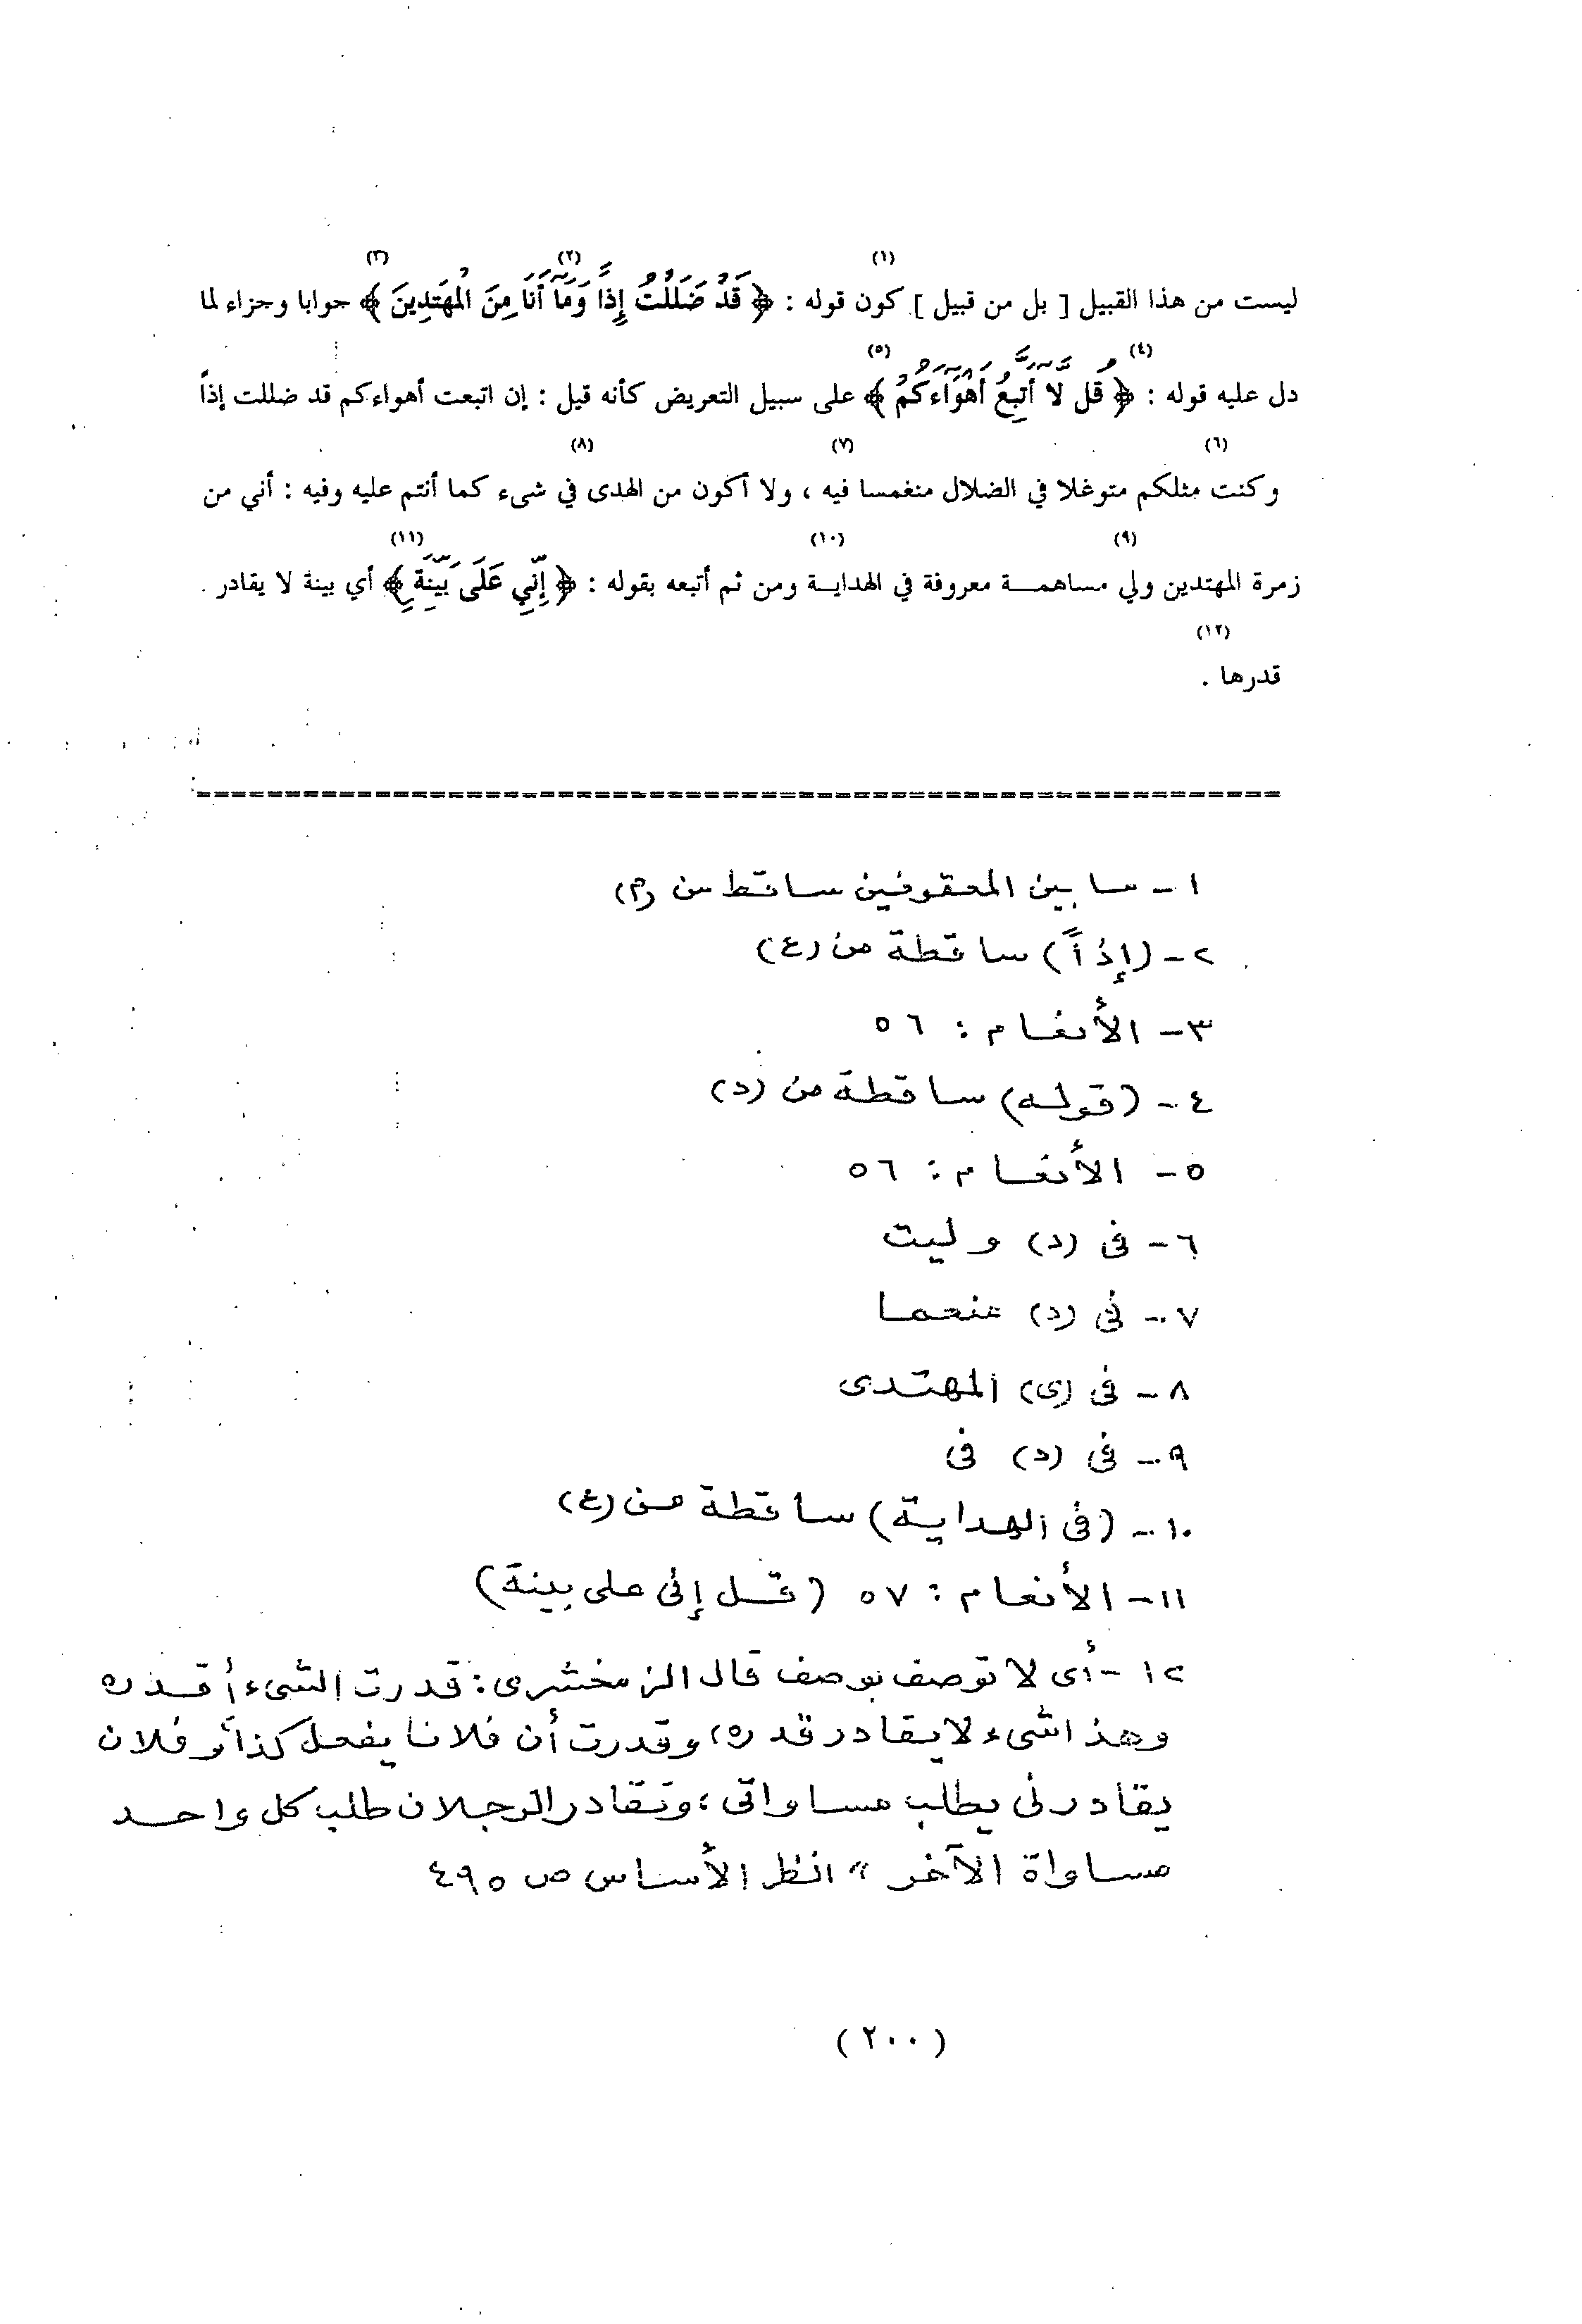 (١) (٢) (٣)
ليست من هذا القبيل [ بل من قبيل ] كون قوله : ﴿ قَدْ ضَلَلْتُ إِذاً وَمَآ أَنَا مِنَ الْمُهْتَدِينَ ﴾ جوابا وجزاء لما
(٤) (٥)
دل عليه قوله : ﴿ قُل لَّا أَتَّبِعُ أَهْوَاءَكُمْ ﴾ على سبيل التعريض كأنه قيل : إن اتبعت أهواءكم قد ضللت إذاً
(٦) (٧) (٨)
وكنت مثلكم متوغلا في الضلال منغمسا فيه ، ولا أكون من الهدى في شىء كما أنتم عليه وفيه : أني من
(٩) (١٠) (١١)
زمرة المهتدين ولي مساهمــة معروفة في الهدايـة ومن ثم أتبعه بقوله : ﴿ إِنِّي عَلَى بَيِّنَةٍ ﴾ أي بينة لا يقادر
(١٢)
قدرها .
١ - ما بين المعقوفين ساقط من (م)
٢ - (إذاً) ساقطة من (ع)
٣ - الأنعام : ٥٦
٤ - (قوله) ساقطة من (د)
٥ - الأنعام : ٥٦
٦ - فى (د) وليت
٧ - فى (د) منحما
٨ - فى (ى) المهتدى
٩ - فى (د) فى
١٠ - (فى الهداية) ساقطة من (ع)
١١ - الأنعام : ٥٧ (قل إنى على بينة)
١٢ - أى لا توصف بوصف قال الزمخشرى : قدرت الشىء أقدره
وهذا شىء لا يقادر قدره، وقدرت أن فلانا يفعل كذا وفلان
يقادرنى يطلب مساواتى ؛ وتقادر الرجلان طلب كل واحد
مساواة الآخر » انظر الأساس ص ٤٩٥
( ٢٠٠ )